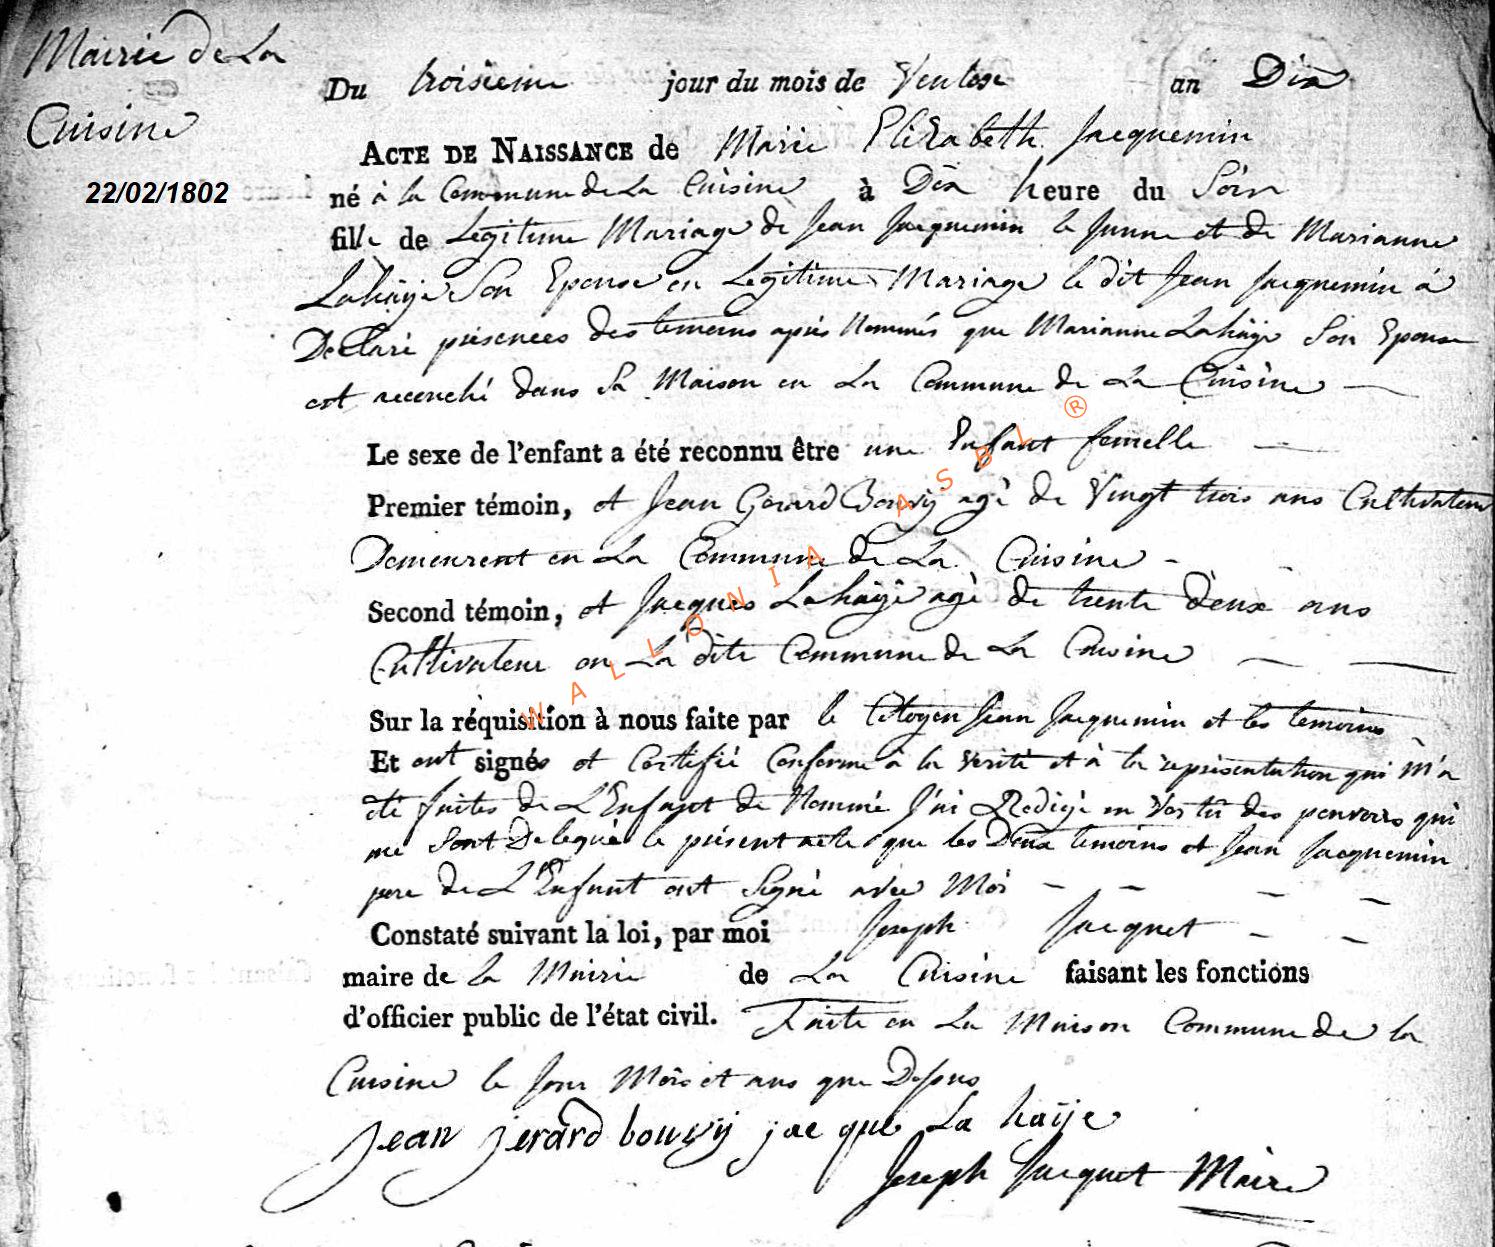 Mairie de La
Cuisine
22/02/1802
Du troisieme jour du mois de Ventose an Dix
ACTE DE NAISSANCE de Marie Elizabeth Jacquemin
né à la Commune de La Cuisine à Dix heure du Soir
fille de Legitime Mariage de Jean Jacquemin le Junne et de Marianne
Lahaÿe Son Epouse en Legitime Mariage le dit Jean Jacquemin à
Declaré présences des temoins après Nommés que Marianne Lahaÿe Son Epouse
est accouché dans Sa Maison en La Commune de La Cuisine
Le sexe de l'enfant a été reconnu être une Enfant femelle
Premier témoin, et Jean Gerard Bouvÿ agé de Vingt trois ans Cultivateur
Demeurent en La Commune de La Cuisine
Second témoin, et Jacques Lahaÿe agé de trente deux ans
Cultivateur en La dite Commune de La Cuisine
Sur la réquisition à nous faite par le Citoyen Jean Jacquemin et les temoins
Et ont signés et Certifié Conforme à la verité et à la représentation qui M'a
été faites de L'Enfant de Nommé J'ai Redigé en Vertü des pouvoirs qui
me Sont Delegué le présent acte que les Deux temoins et Jean Jacquemin
pere de L'Enfant ont Signé avec Moi
Constaté suivant la loi, par moi Joseph Jacquet
maire de la Mairie de La Cuisine faisant les fonctions
d'officier public de l'état civil. Faite en La Maison Commune de la
Cuisine le Jour Mois et ans que Dessus
jean jerard bouvÿ jacque La haÿe
Joseph Jacquet Maire
WALLONIA ASBL ®